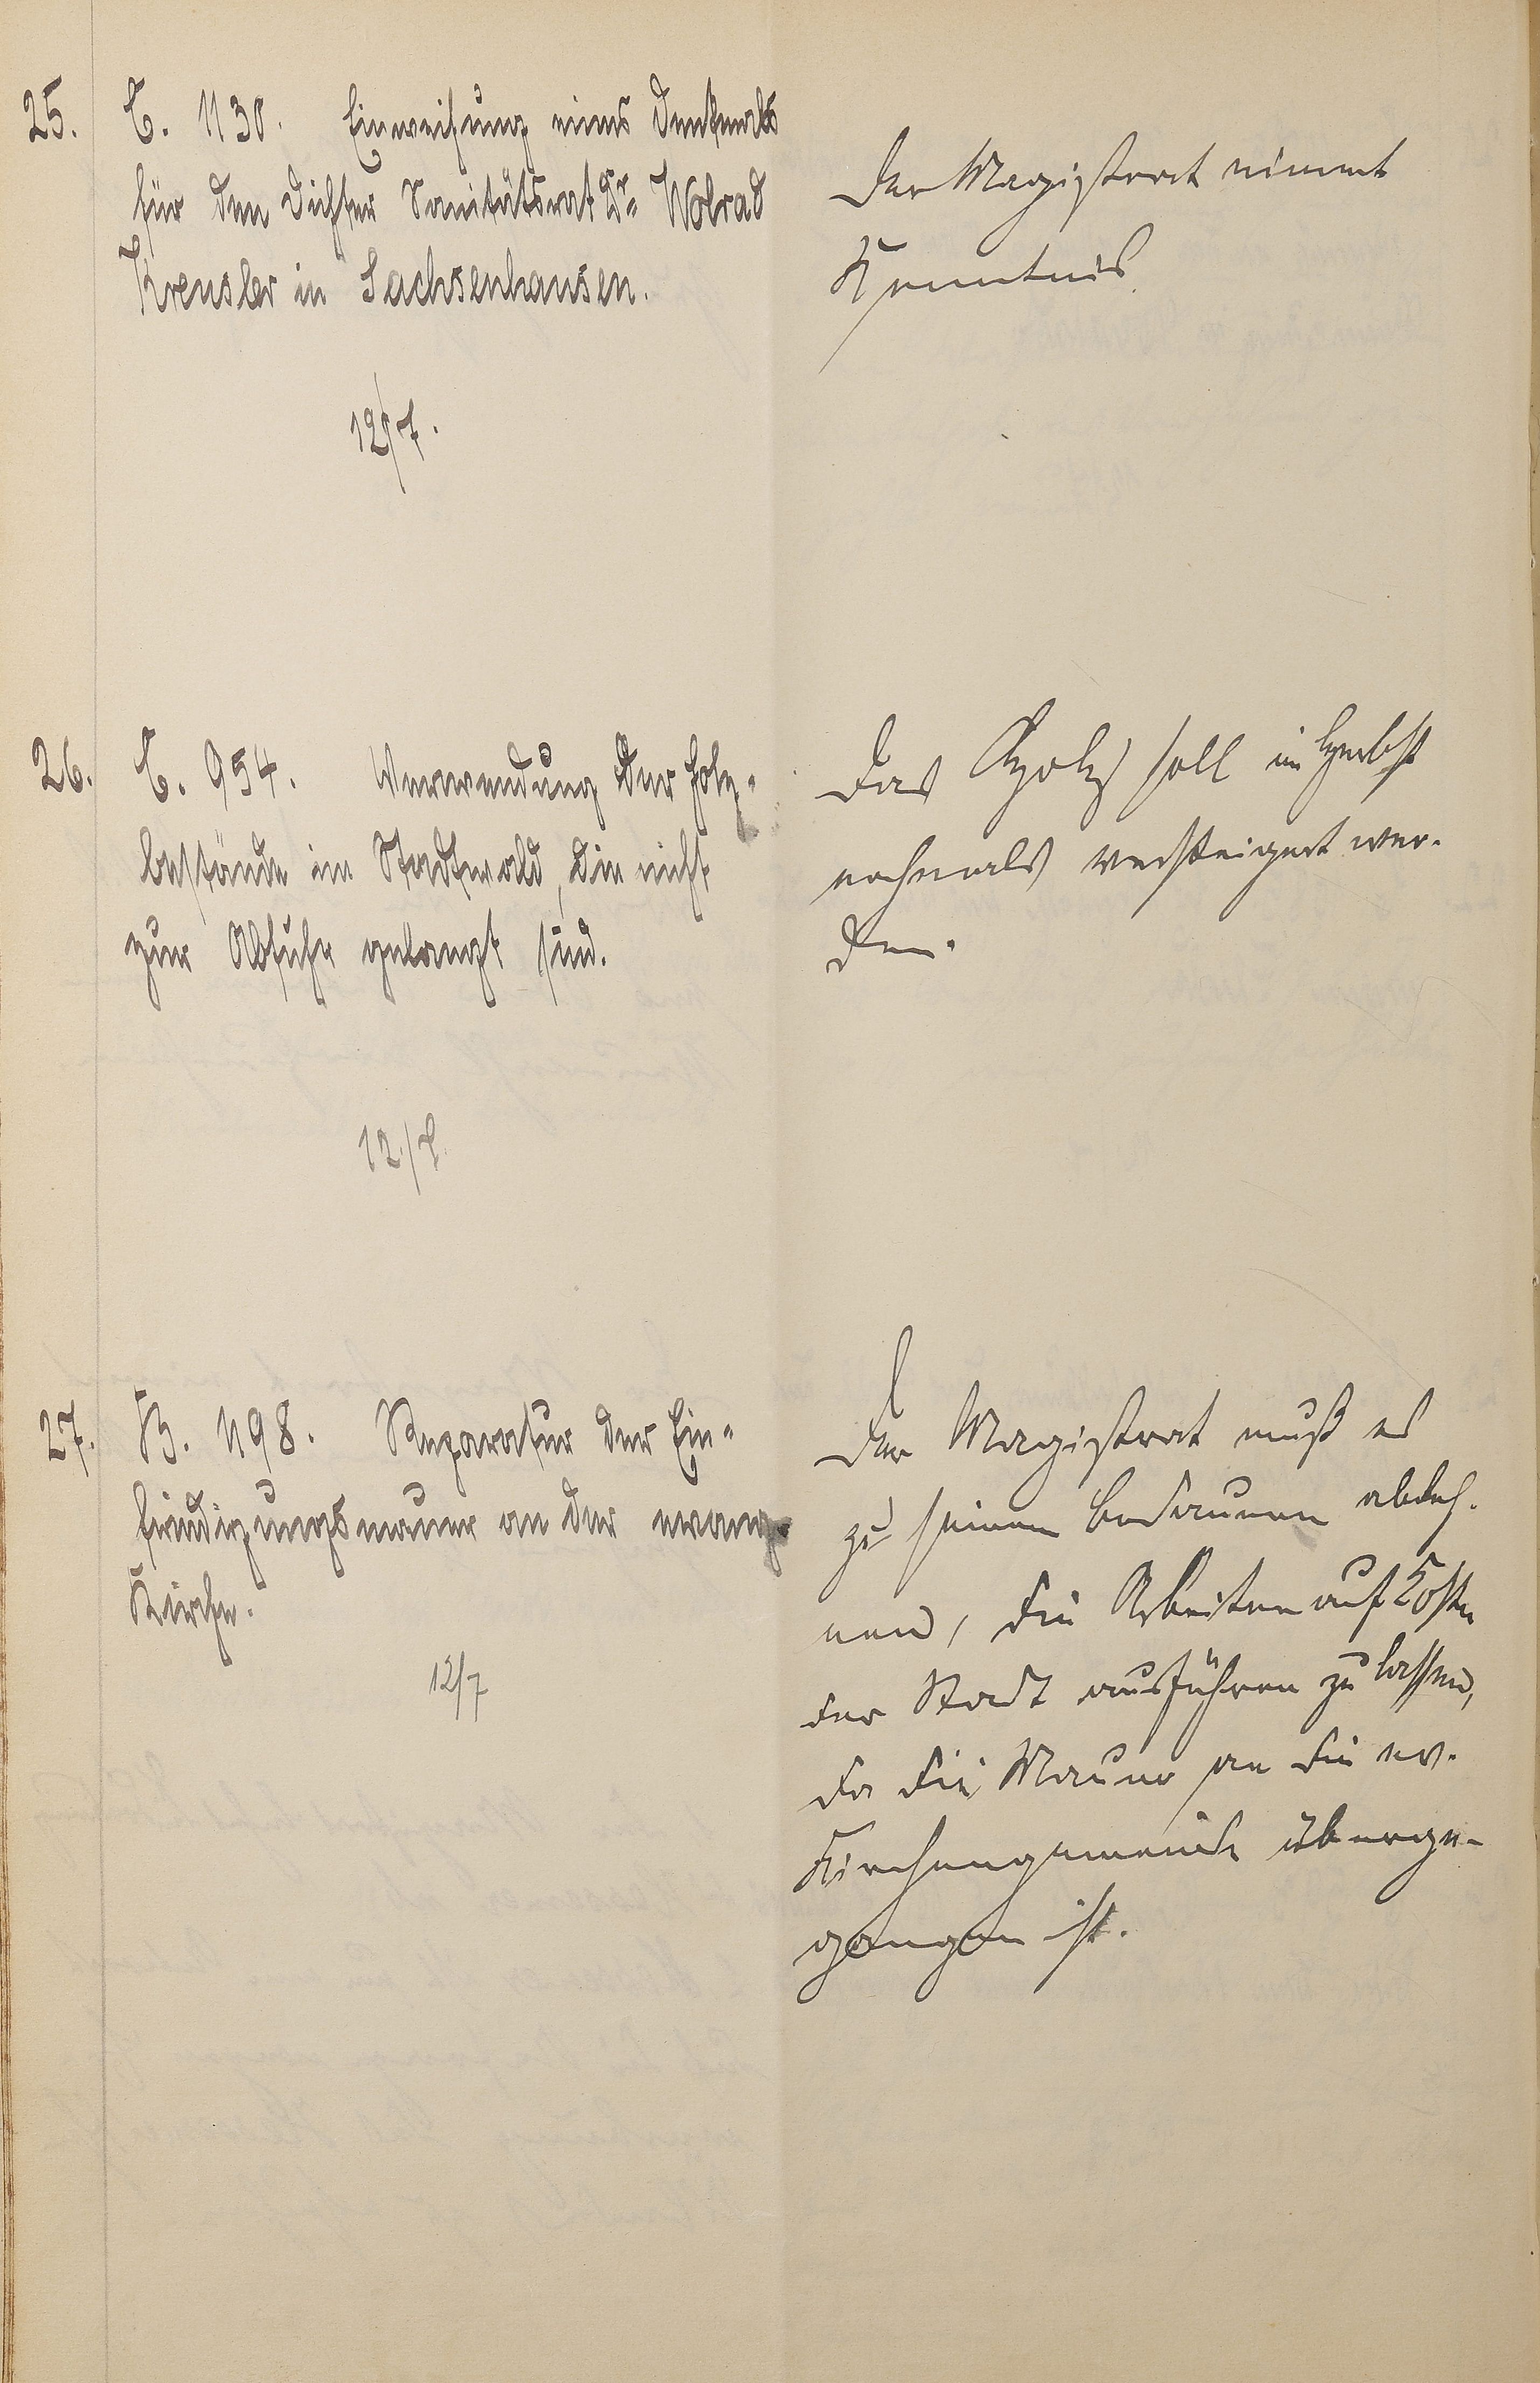 25. C. 1130. Einweihung eines Denkmals
für den Dichter Sanitätsrat Dr. Wolrad
Kreusler in Sachsenhausen.
12/7.
Der Magistrat nimmt
Kenntnis.
26. C. 954. Verwendung der Holz-
bestände im Stadtwald, die nicht
zur Abfuhr gelangt sind.
12./7.
Das Holz soll im Herbst
nochmals versteigert wer-
den.
27. B. 1198. Reparatur der Ein-
friedigungsmauer an der evang.
Kirche.
12/7
Der Magistrat muß es
zu seinem Bedauern ableh-
nen, die Arbeiten auf Kosten
der Stadt ausführen zu lassen,
da die Mauer an die ev.
Kirchengemeinde überge-
gangen ist.